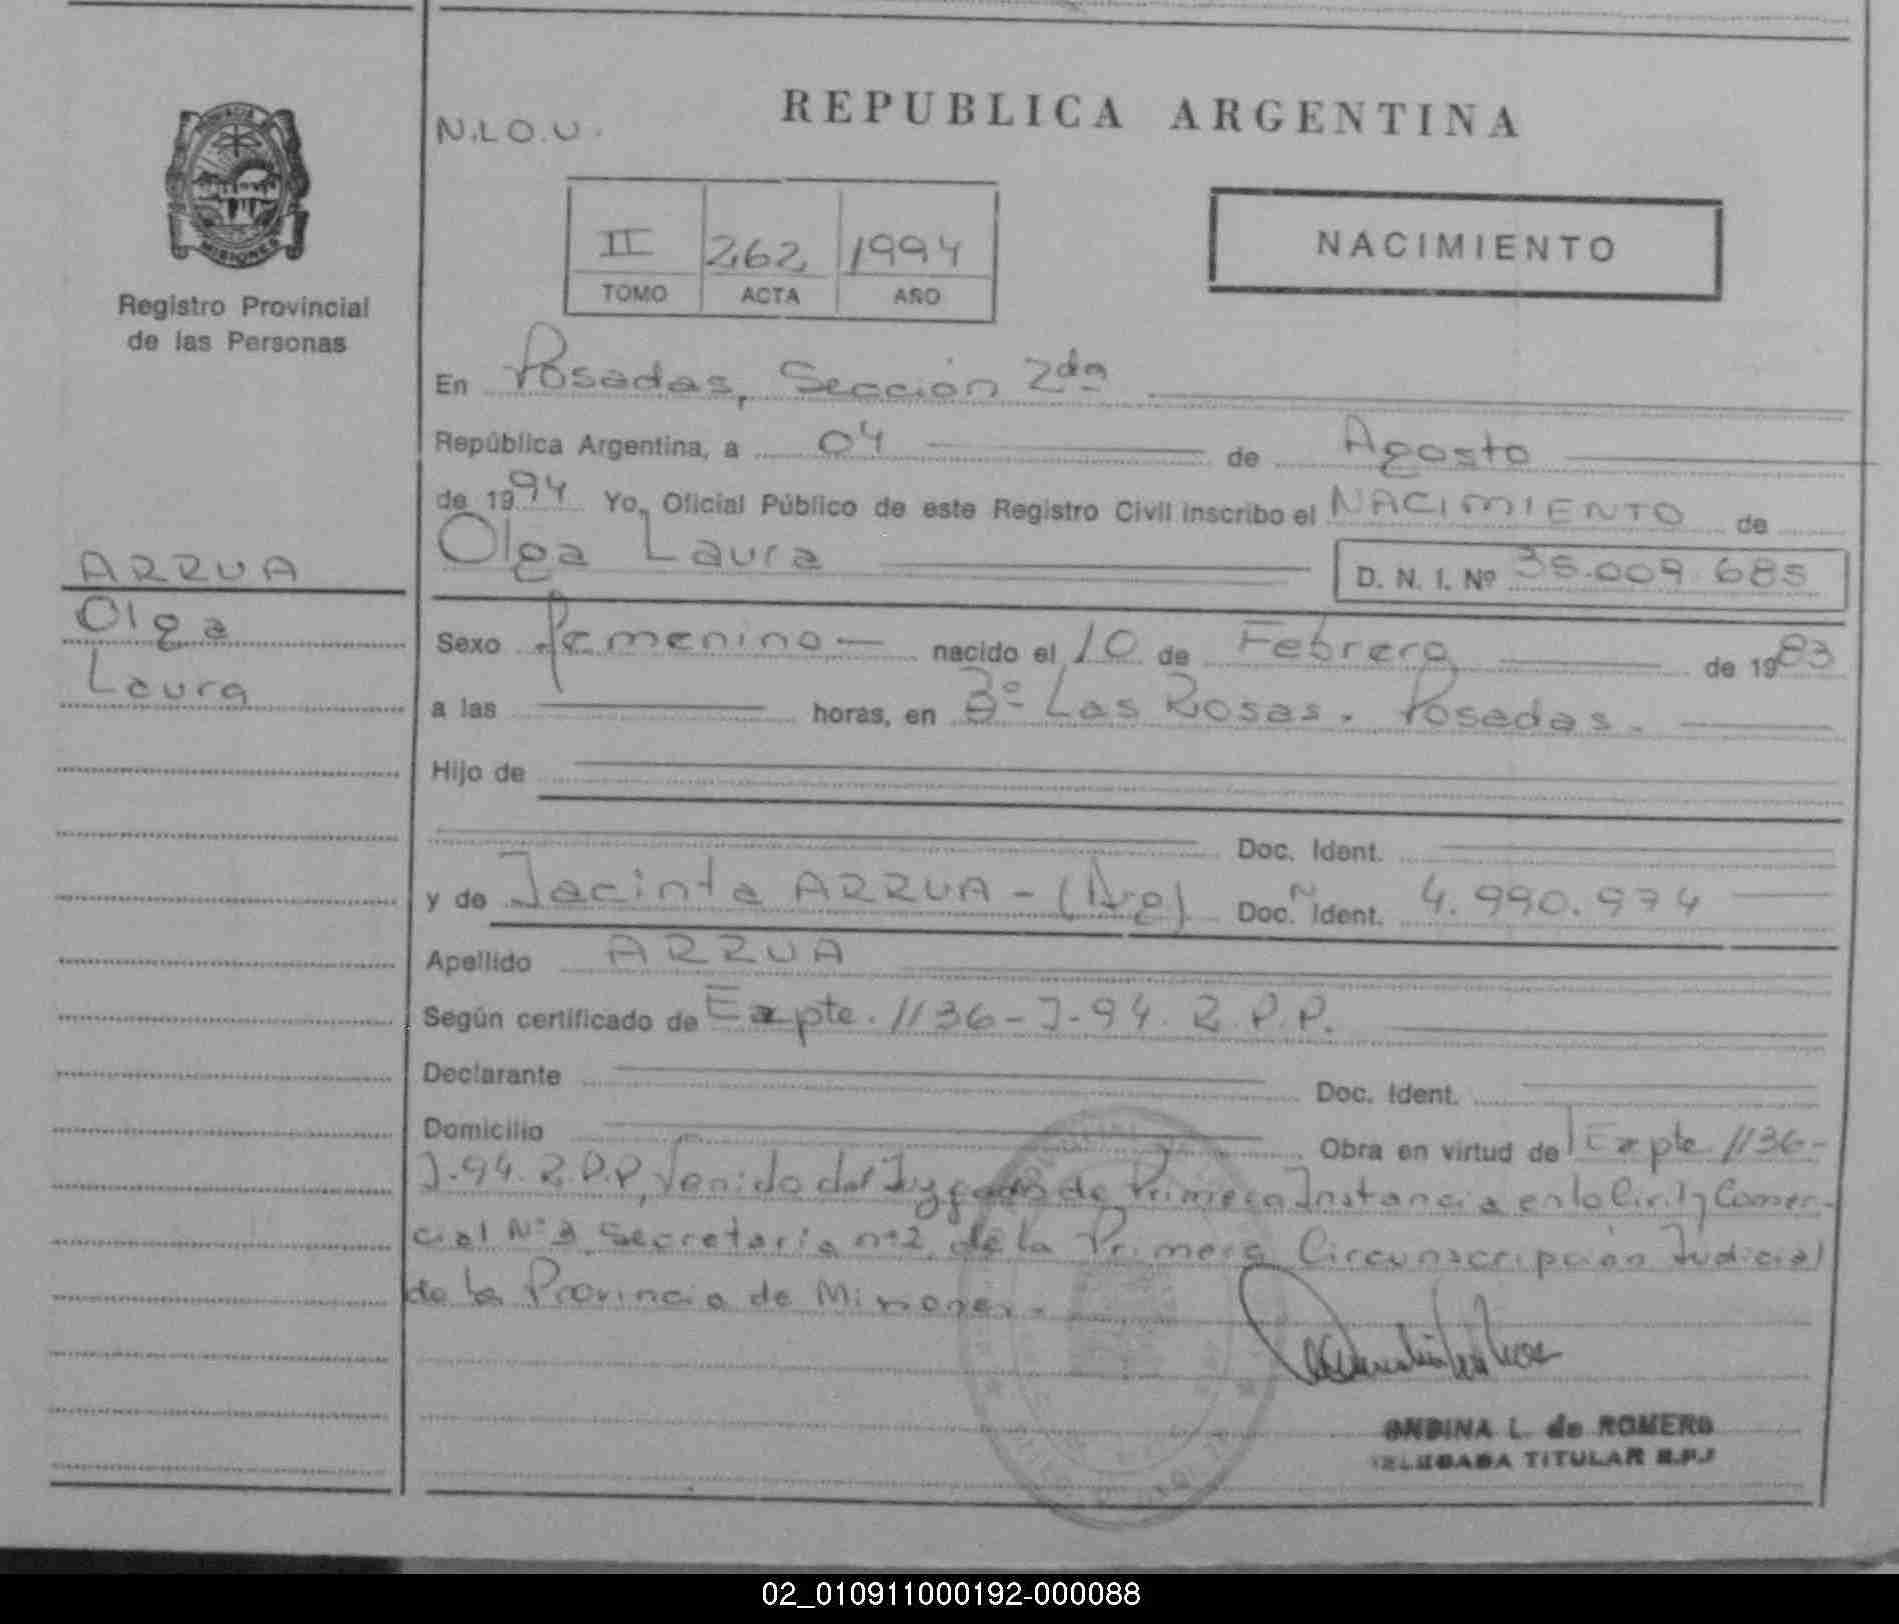 REPUBLICA ARGENTINA
N.L.O.U.
II 262 1994
TOMO ACTA AÑO
NACIMIENTO
MISIONES
Registro Provincial
de las Personas
En Posadas, Sección 2da
República Argentina, a 04 de Agosto
de 1994 Yo, Oficial Público de este Registro Civil inscribo el NACIMIENTO de
Olga Laura D. N. I. Nº 35.009.685
ARRUA
Olga
Laura
Sexo femenino nacido el 10 de Febrero de 1983
a las horas, en Bº Las Rosas. Posadas.
Hijo de
Doc. Ident.
y de Jacinta ARRUA - (Arg) Doc. N Ident. 4.990.974
Apellido ARRUA
Según certificado de Expte. 1136-J-94. R.P.P.
Declarante Doc. Ident.
Domicilio Obra en virtud de Expte. 1136-
J-94. R.P.P, Venido del Juzgado de Primera Instancia en lo Civil y Comer-
cial Nº 3 Secretaria nº 2, de la Primera Circunscripción Judicial
de la Provincia de Misiones.
ONDINA L. de ROMERO
DELEGADA TITULAR R.P.P
02_010911000192-000088